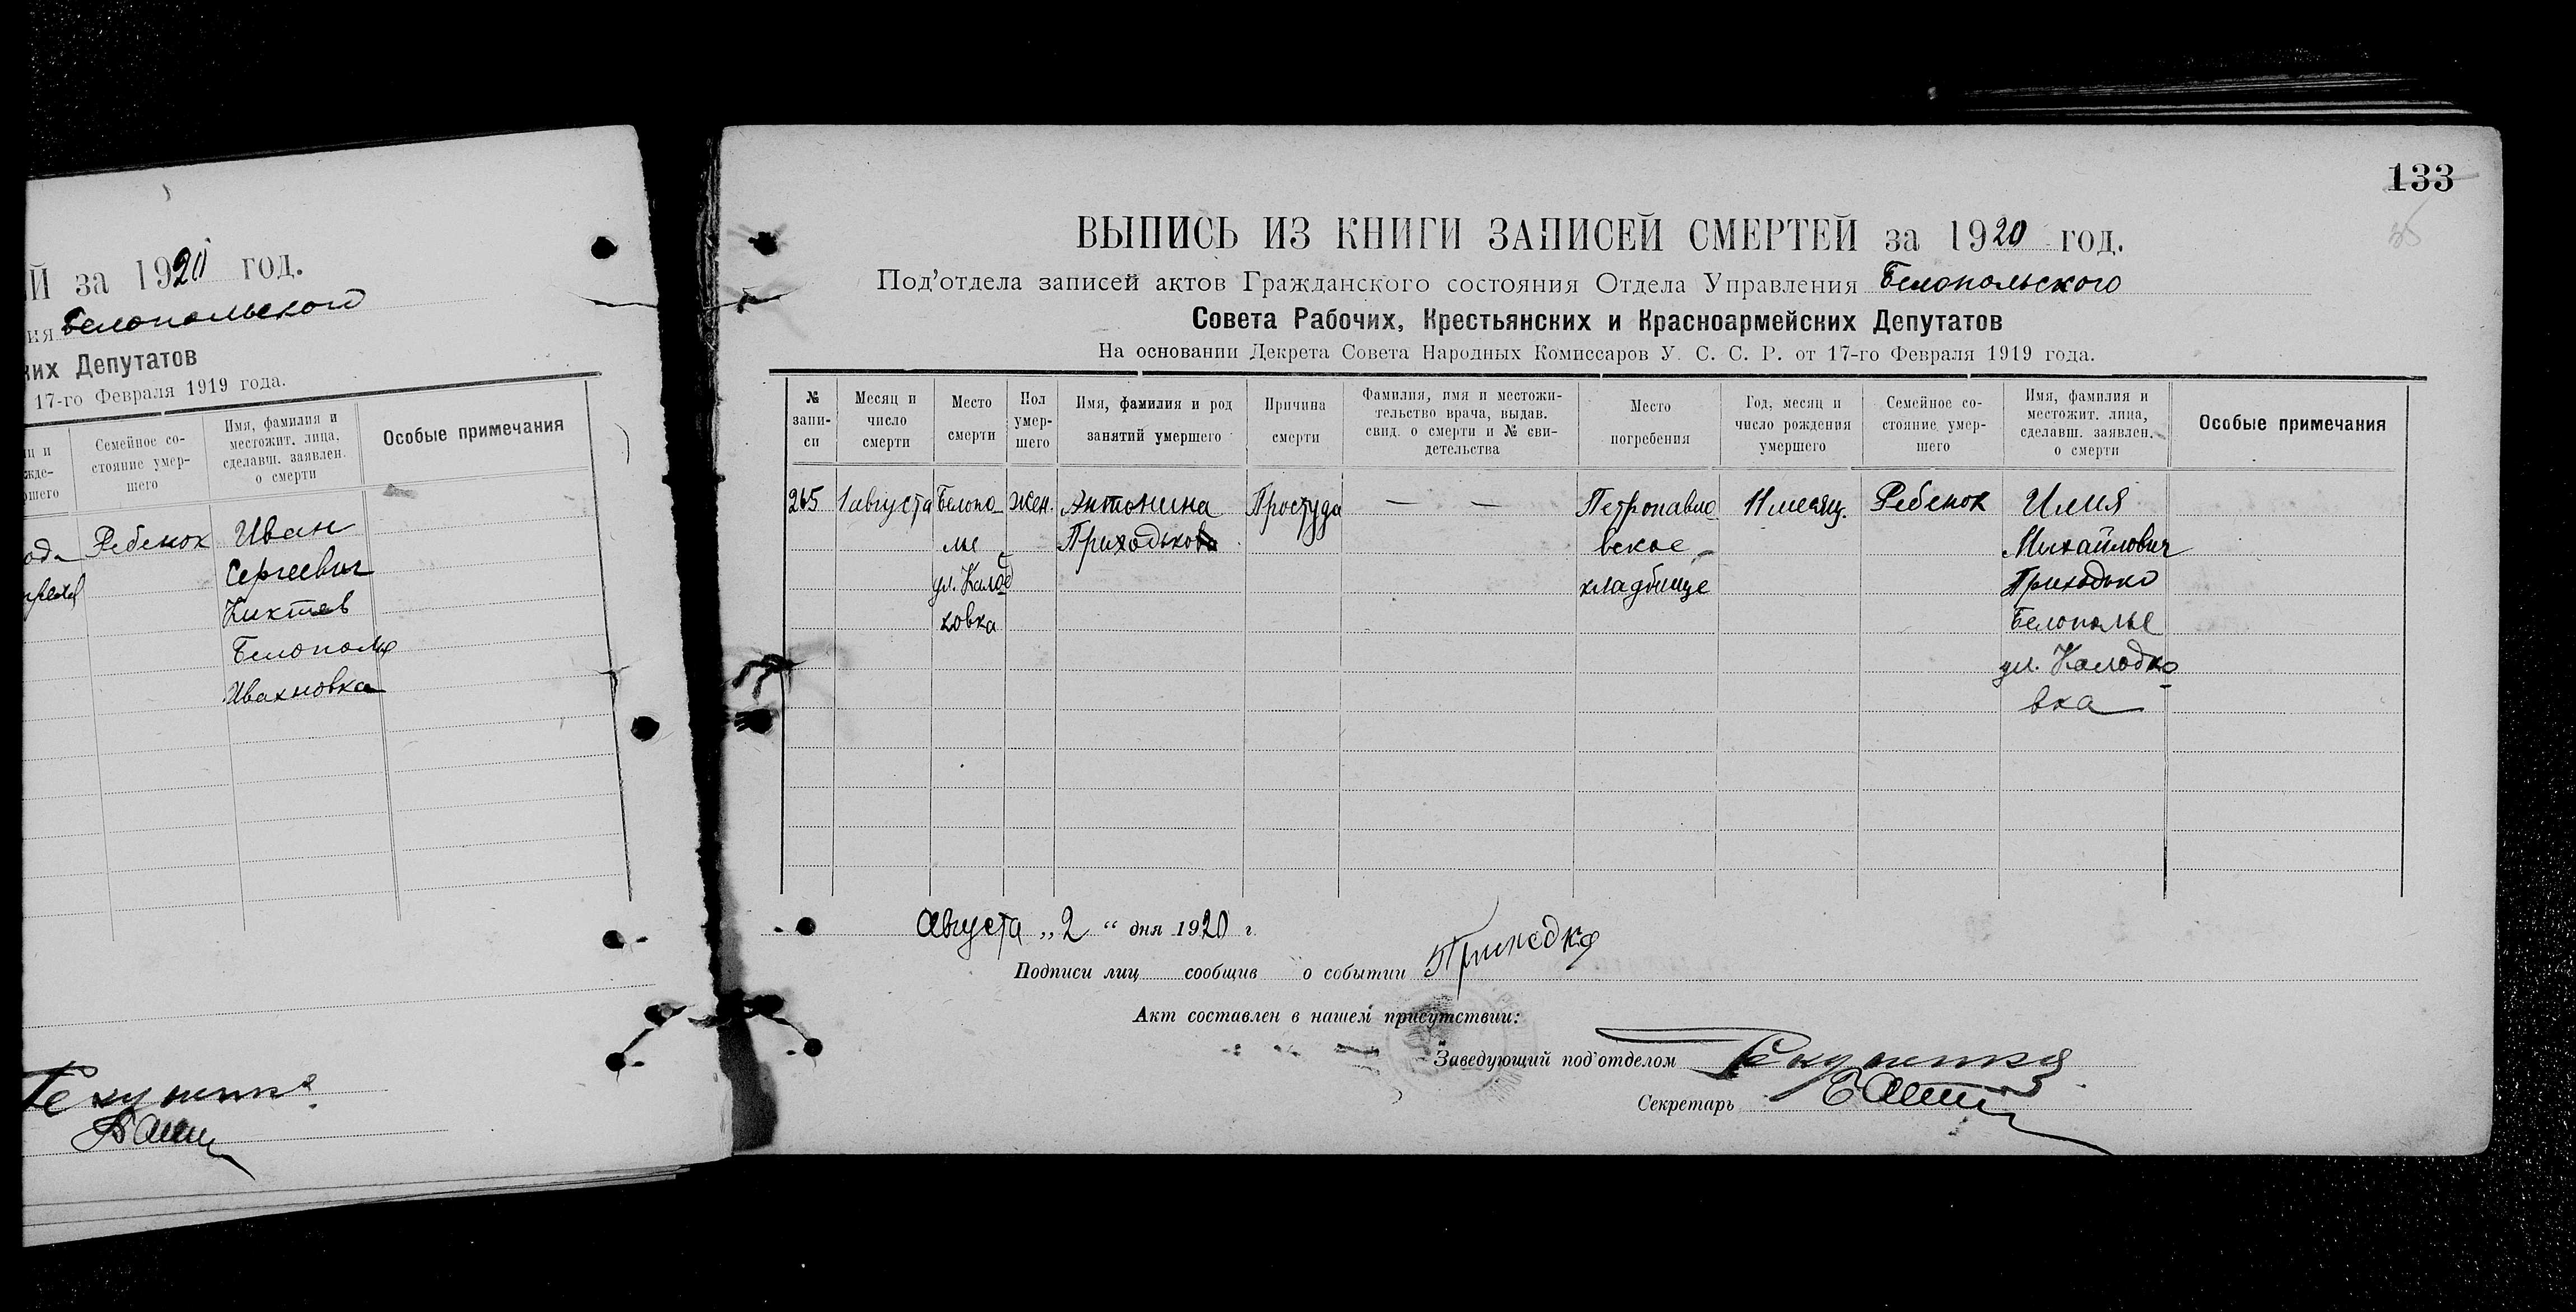 Й за 1920 год.
ия Белопольского
ких Депутатов
17-го Февраля 1919 года.
Семейное со-
стояние умер-
шего
Имя, фамилия и
местожит. лица,
сделавш. заявлен.
о смерти
Особые примечания
Ребенок
Иван
Сергеевич
Киктев
Белополье
Ивахновка
133
ВЫПИСЬ ИЗ КНИГИ ЗАПИСЕЙ СМЕРТЕЙ за 1920 год.
Под'отдела записей актов Гражданского состояния Отдела Управления Белопольского
Совета Рабочих, Крестьянских и Красноармейских Депутатов
На основании Декрета Совета Народных Комиссаров У. С. С. Р. от 17-го Февраля 1919 года.
№
запи-
си
Месяц и
число
смерти
Место
смерти
Пол
умер-
шего
Имя, фамилия и род
занятий умершего
Причина
смерти
Фамилия, имя и местожи-
тельство врача, выдав.
свид. о смерти и № сви-
детельства
Место
погребения
Год, месяц и
число рождения
умершего
Семейное со-
стояние умер-
шего
Имя, фамилия и
местожит. лица,
сделавш. заявлен.
о смерти
Особые примечания
265
1 августа
Белопо-
лье
ул. Колод
ковка
жен.
Антонина
Приходько
Простуда
— —
Петропавло-
вское
кладбище
11 месяц.
Ребенок
Илия
Михайлович
Приходько
Белополье
ул. Колодко-
вка
Августа „2“ дня 1920 г
Подписи лиц сообщив о событии Приходко
Акт составлен в нашем присутствии:
Заведующий под'отделом
Секретарь